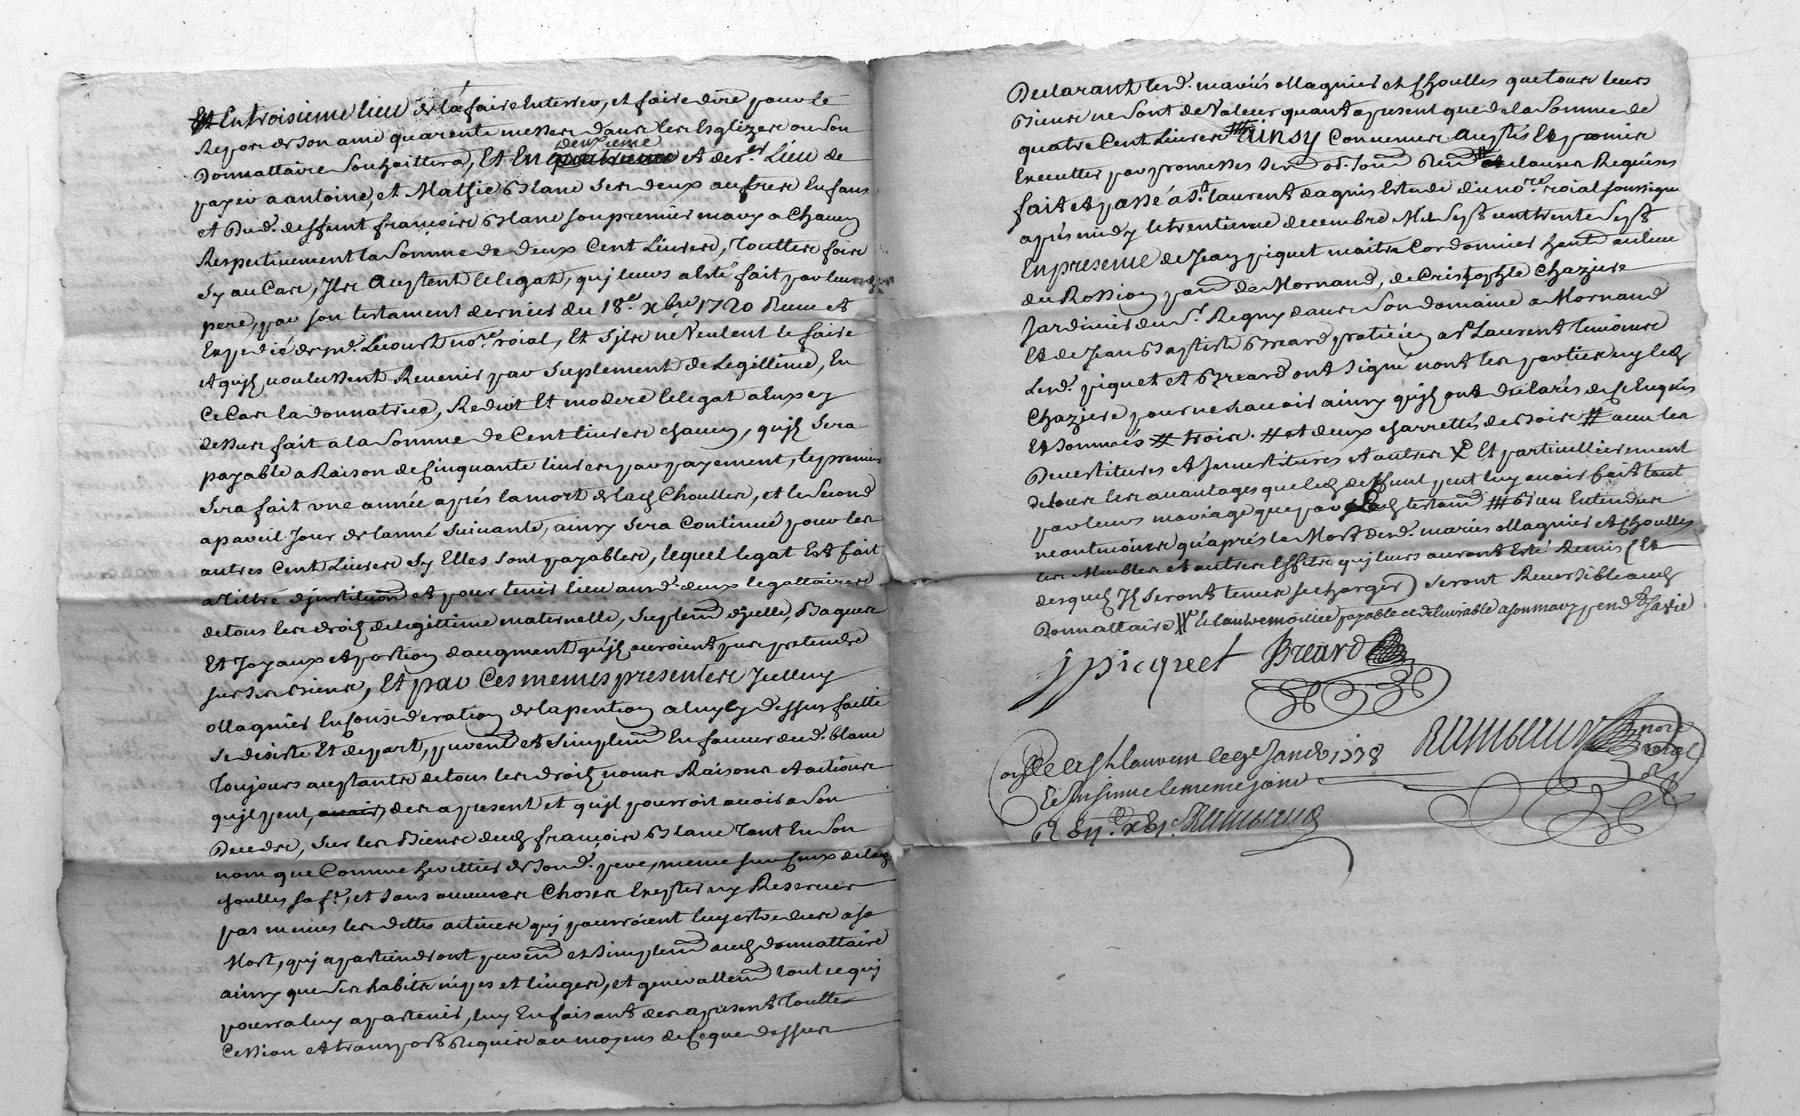 Et En troisieme lieu de la faire Enterrer, et faire dire pour le
Repos de son ame quarente messes dans les Esglizes ou son
donnattaire souhaittera, Et En deuxieme et der.er Lieu de
payer a antoine, et Mathie Blanc ses deux autres Enfans
et dud. deffunt françois Blanc son premier mary a Chacun
Respectivement la somme de deux Cent Livres, Touttes fois
sy au Cas, Ils acceptent le legat, quj leurs a esté fait par leur d.
pere, par son testament dernier du 18.e xbre 1720 Receu et
Expedié de m.e Lecourt no.re roial, Et s'jls ne veulent le faire
et qujls voulussent Revenir par suplement de Legittime, En
Ce Cas la donnatrice, Reduit Et modere le legat a Eux cy
dessus fait a la somme de Cent livres chacun, qujl sera
payable a Raison de Cinquante livres par payement, le premier
sera fait une année aprés la mort de lad Choulles, et le second
a pareil Jour de l'anné suivante, ainsy sera Continué pour les
autres Cent Livres sy Elles sont payables, lequel legat Est fait
a tittre d'jnstitu.on et pour tenir lieu ausd. deux legattaires
de tous les droits de legittime maternelle, suplem.t d'jcelle, Bagues
Et Joyaux et portion d'augment qu'jls auroient pus pretendre
sur ses biens, Et par Ces memes presentes Jcelluy
Magnier En Consideration de la pention a luy cy dessus faitte
se desiste Et depart, purem.t et simplem.t En faveur dud. blanc
Toujours acceptante de tous les droits noms Raisons et actions
qujl peut, avoir, des a present et qu'jl pourroit avoir a son
Decedre, sur les Biens dud françois Blanc Tant En son
nom que Comme heritier de son d. pere, meme sur Ceux de lad
choulles sa f.e, et sans aucunes Choses Excepter ny Reserver
pas memes les dettes actives quj pourroient luy estre dues a sa
Mort, quj apartiendront purem.t et simplem.t aud donnattaire
ainsy que ses habits nipes et linges, et generallem.t tout ce quj
pourra luy apartenir, luy En faisant des a present Toutte
Cession et transport Requise au moyens de Ce que dessus
Declarant lesd. mariés Magnier et Choulles que tous leurs
Biens ne sont de valeur quant a present que de la somme de
quatre Cent Livres # Ainsy Convenu accepté Et promis
Executter par promesses serm.
fait et passé a S.t laurent Estude du no.re roial soussigné
aprés midy le trentieme decembre Mil sept cent trente sept
En presence de Jean piquet maitre Cordonnier
du Rossion de Mornand, de Cristophle Chazier
Jardinier du s.r Regny dans son domaine a Mornand
Et de Jean Baptiste Breard praticien a S.t Laurent temoins
Lesd. piquet et Breard ont signé nont les parties ny led
Chazier pour ne scavoir ainsy qujls ont declarés de Ce Enquis
Et sommés # trois. # et deux charrettés de Bois # avec les
Devestitures et jnvestitures et autres x Et particulierement
de tous les avantages que led deffunt peut luy avoir fait tant
par leurs mariage que par led testam.t # Bien Entendus
neantmoins qu'aprés la Mort desd. mariés Magnier et Choulles
les Meubles et autres Effets quj leurs auront Esté Remis (Et
desquels Jls seront tenus se charger) seront Reversibles aud
Donnattaire # Et lautre moitiee payable et delivrable a son mary
j picquet Breard
RAMbaud no.re roial
Controllé a S.t Laurent le 9.e Janv. 1738
Et insinué le meme jour
Rambaud